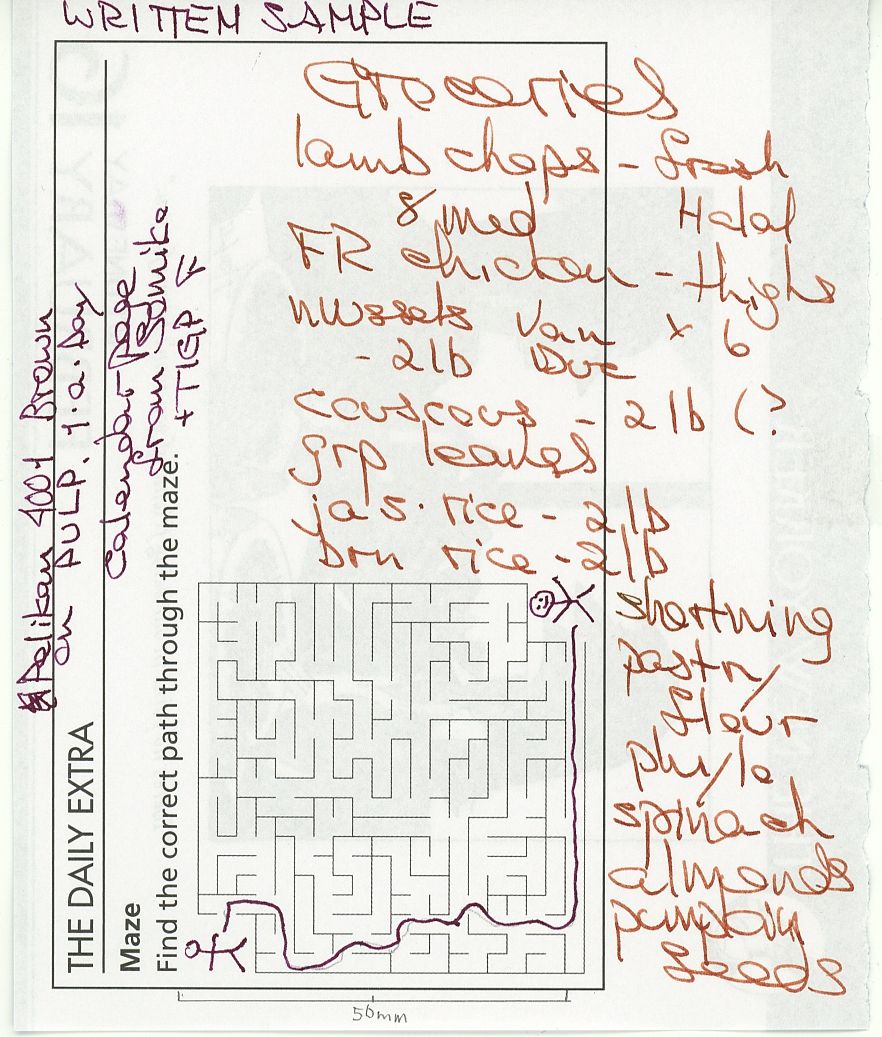 WRITTEN SAMPLE
Groceries
lamb chops - fresh
8 med Halal
FR chicken - thighs
nuggets Van x 6
- 2lb Due
couscous - 2 lb (?
grp leaves
jas. rice - 2 lb
brn rice - 2lb
shortning
pastry
flour
phylo
spinach
almonds
pumpkin
seeds
Pelikan 4001 Brown
on PULP. 1.a.Day
Calendar page
from Somika
+ TIGP
THE DAILY EXTRA
Maze
Find the correct path through the maze.
50mm